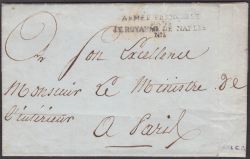 ARMÉE FRANÇAISE
LE ROYAUME DE NAPLES
A Son Excellence
Monsieur Le Ministre De
l'intérieur
A Paris